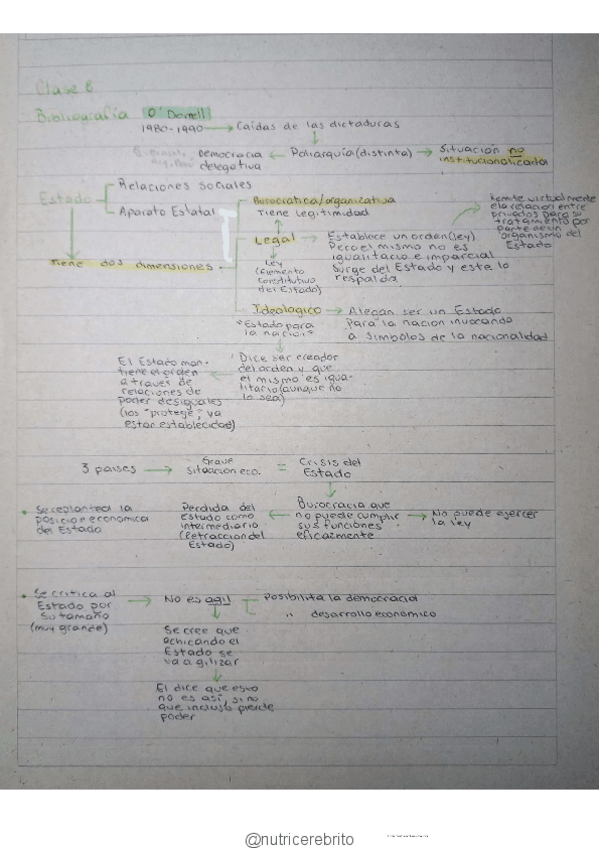 Clase 6
Bibliografía O'Donell
1980-1990 → Caídas de las dictaduras
Democracia delegativa ← Poliarquía (distinta) → Situación no institucionalizada
Estado
Relaciones sociales
Aparato Estatal
tiene dos dimensiones
Burocrática/organizativa
Tiene legitimidad
Legal → Establece un orden (ley)
Pero el mismo no es
igualitario e imparcial
surge del Estado y este lo
respalda
Remite virtualmente
ela relacion entre
privados para su
tratamiento por
parte de un
organismo del
Estado
Ley
(Elemento
constitutivo
del Estado)
Ideologico → Alegan ser un Estado
para la nacion invocando
a simbolos de la nacionalidad
"Estado para
la nacion"
Dice ser creador
del orden y que
el mismo es igua-
litario (aunque no
lo sea)
El Estado man-
tiene el orden
a traves de
relaciones de
poder desiguales
(los "protege", ya
estan establecidas)
3 paises → Grave
situacion eco. = Crisis del
Estado
Burocracia que
no puede cumplir
sus funciones
eficazmente
→ No puede ejercer
la ley
Perdida del
estado como
intermediario
(Retraccion del
Estado)
• Se replantea la
posicion economica
del Estado
• Se critica al
Estado por
su tamaño
(muy grande)
→ No es agil
Posibilita la democracia
" desarrollo economico
Se cree que
achicando el
Estado se
va a agilizar
El dice que esto
no es asi, si no
que incluso pierde
poder
@nutricerebrito